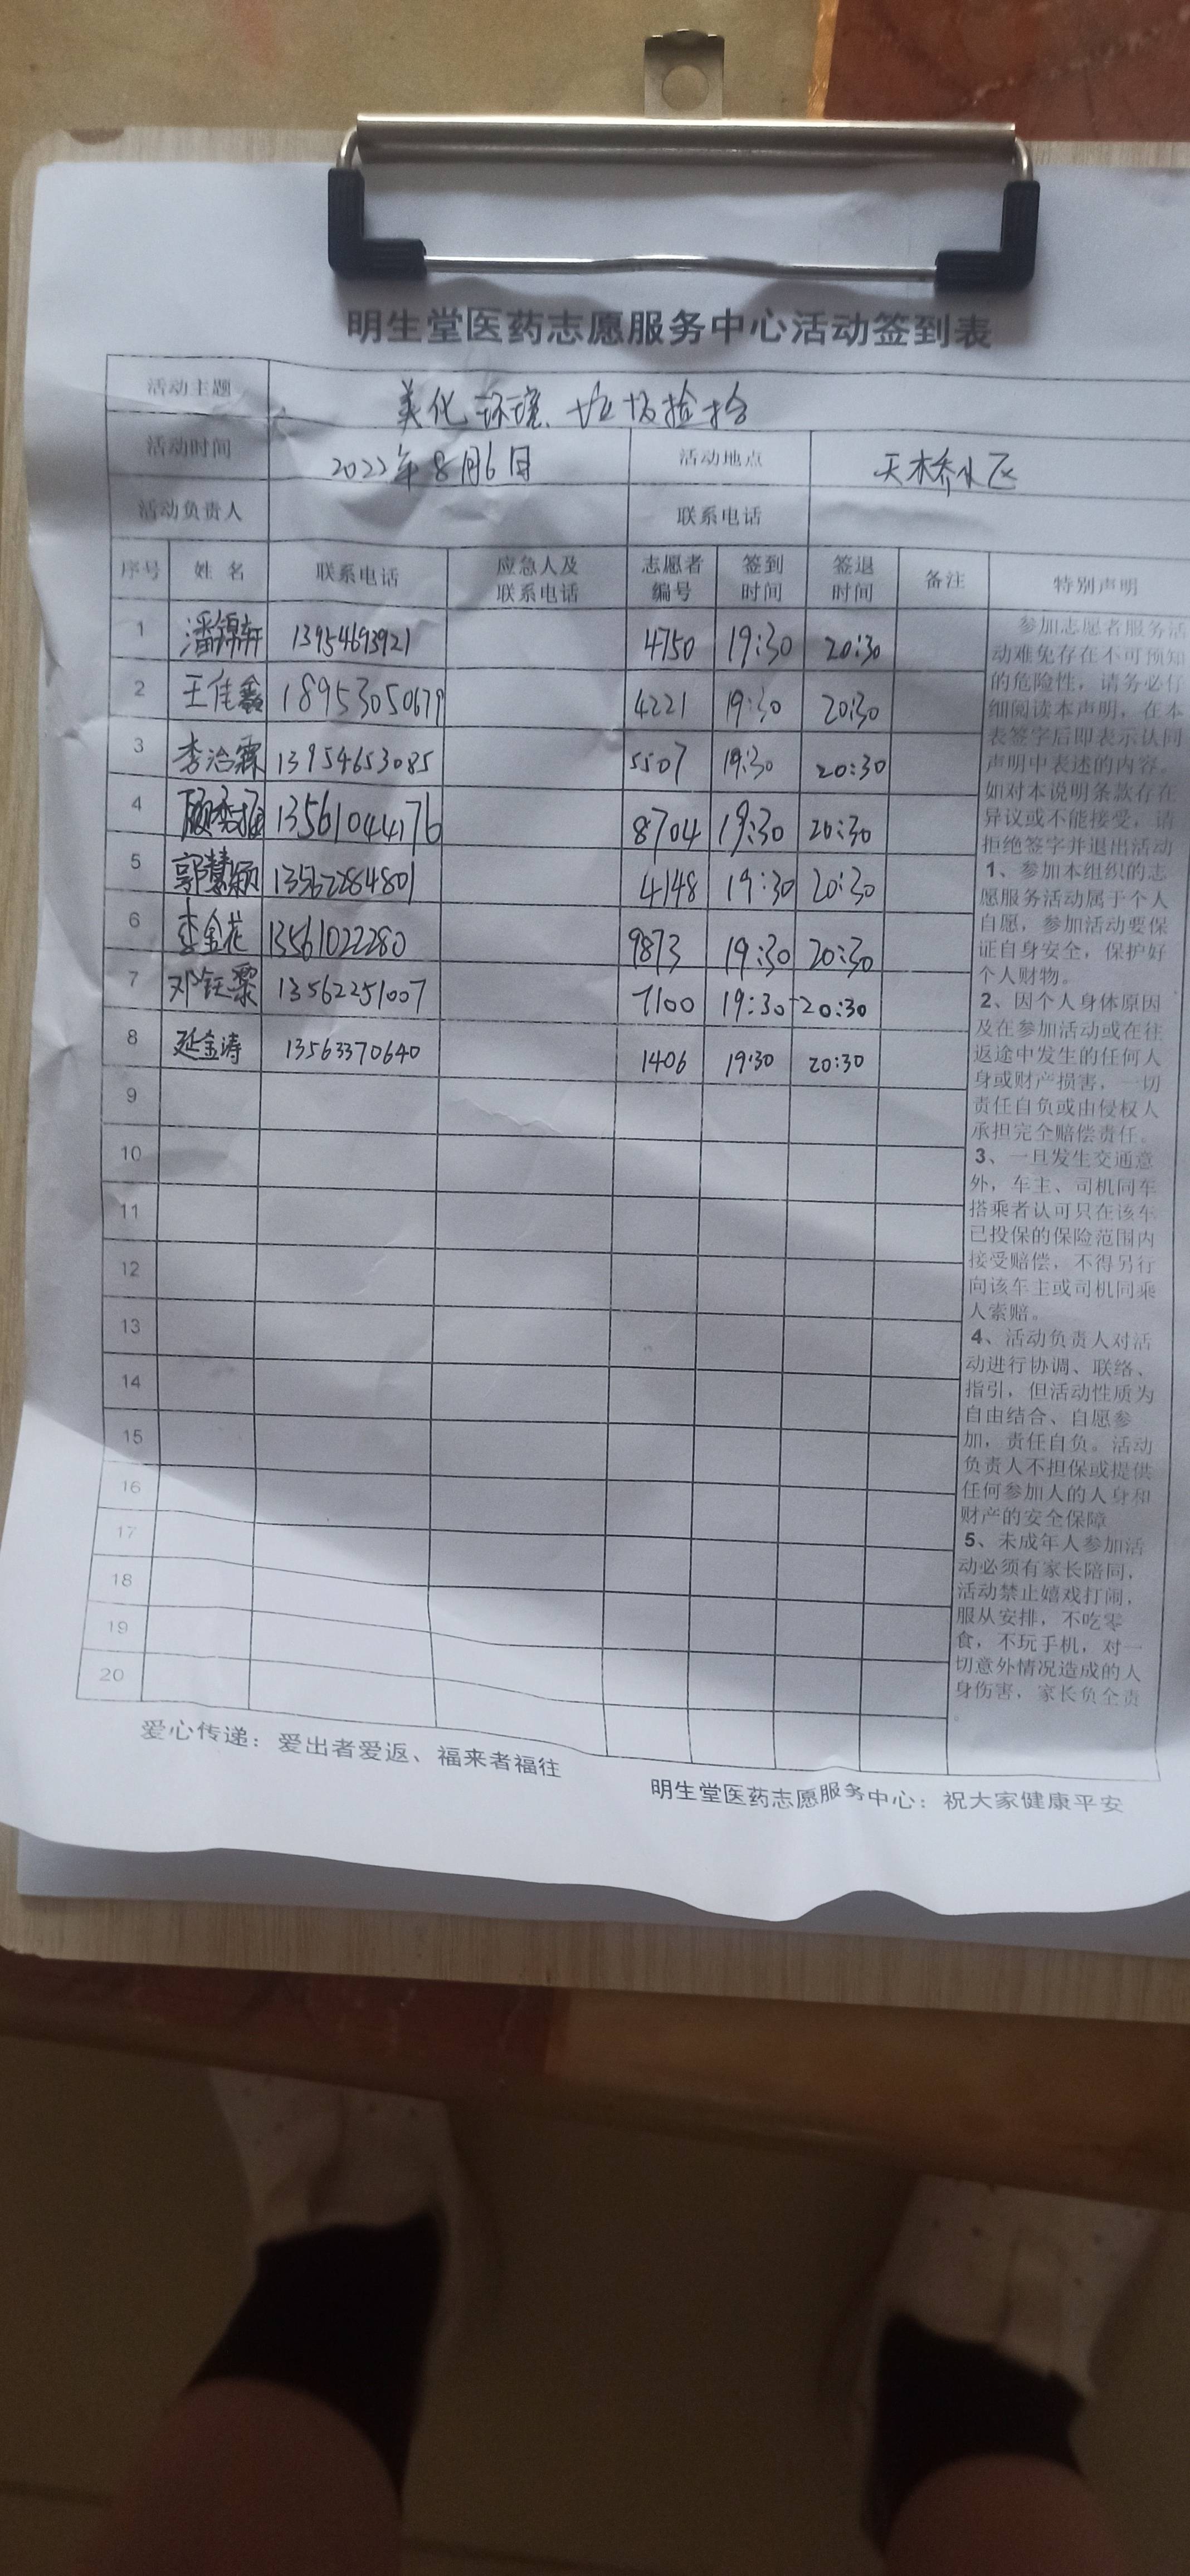 明生堂医药志愿服务中心活动签到表
活动主题 美化环境、垃圾捡拾
活动时间 2022年8月6日 活动地点 天桥小区
活动负责人 联系电话
序号 姓名 联系电话 应急人及联系电话 志愿者编号 签到时间 签退时间 备注 特别声明
1 潘锦轩 13954693921 4750 19:30 20:30
2 王佳鑫 18953050679 4221 19:30 20:30
3 李治霖 13954653085 5507 19:30 20:30
4 13561044176 8704 19:30 20:30
5 郭慧颖 13562284801 4148 19:30 20:30
6 李金花 13561022280 9873 19:30 20:30
7 邓钰 13562251007 7100 19:30 20:30
8 延金涛 13563370640 1406 19:30 20:30
9
10
11
12
13
14
15
16
17
18
19
20
参加志愿者服务活
动难免存在不可预知
的危险性，请务必仔
细阅读本声明，在本
表签字后即表示认同
声明中表述的内容。
如对本说明条款存在
异议或不能接受，请
拒绝签字并退出活动
1、参加本组织的志
愿服务活动属于个人
自愿，参加活动要保
证自身安全，保护好
个人财物。
2、因个人身体原因
及在参加活动或在往
返途中发生的任何人
身或财产损害，一切
责任自负或由侵权人
承担完全赔偿责任。
3、一旦发生交通意
外，车主、司机同车
搭乘者认可只在该车
已投保的保险范围内
接受赔偿，不得另行
向该车主或司机同乘
人索赔。
4、活动负责人对活
动进行协调、联络、
指引，但活动性质为
自由结合、自愿参
加，责任自负。活动
负责人不担保或提供
任何参加人的人身和
财产的安全保障
5、未成年人参加活
动必须有家长陪同，
活动禁止嬉戏打闹，
服从安排，不吃零
食，不玩手机，对一
切意外情况造成的人
身伤害，家长负全责
。
爱心传递：爱出者爱返、福来者福往
明生堂医药志愿服务中心：祝大家健康平安